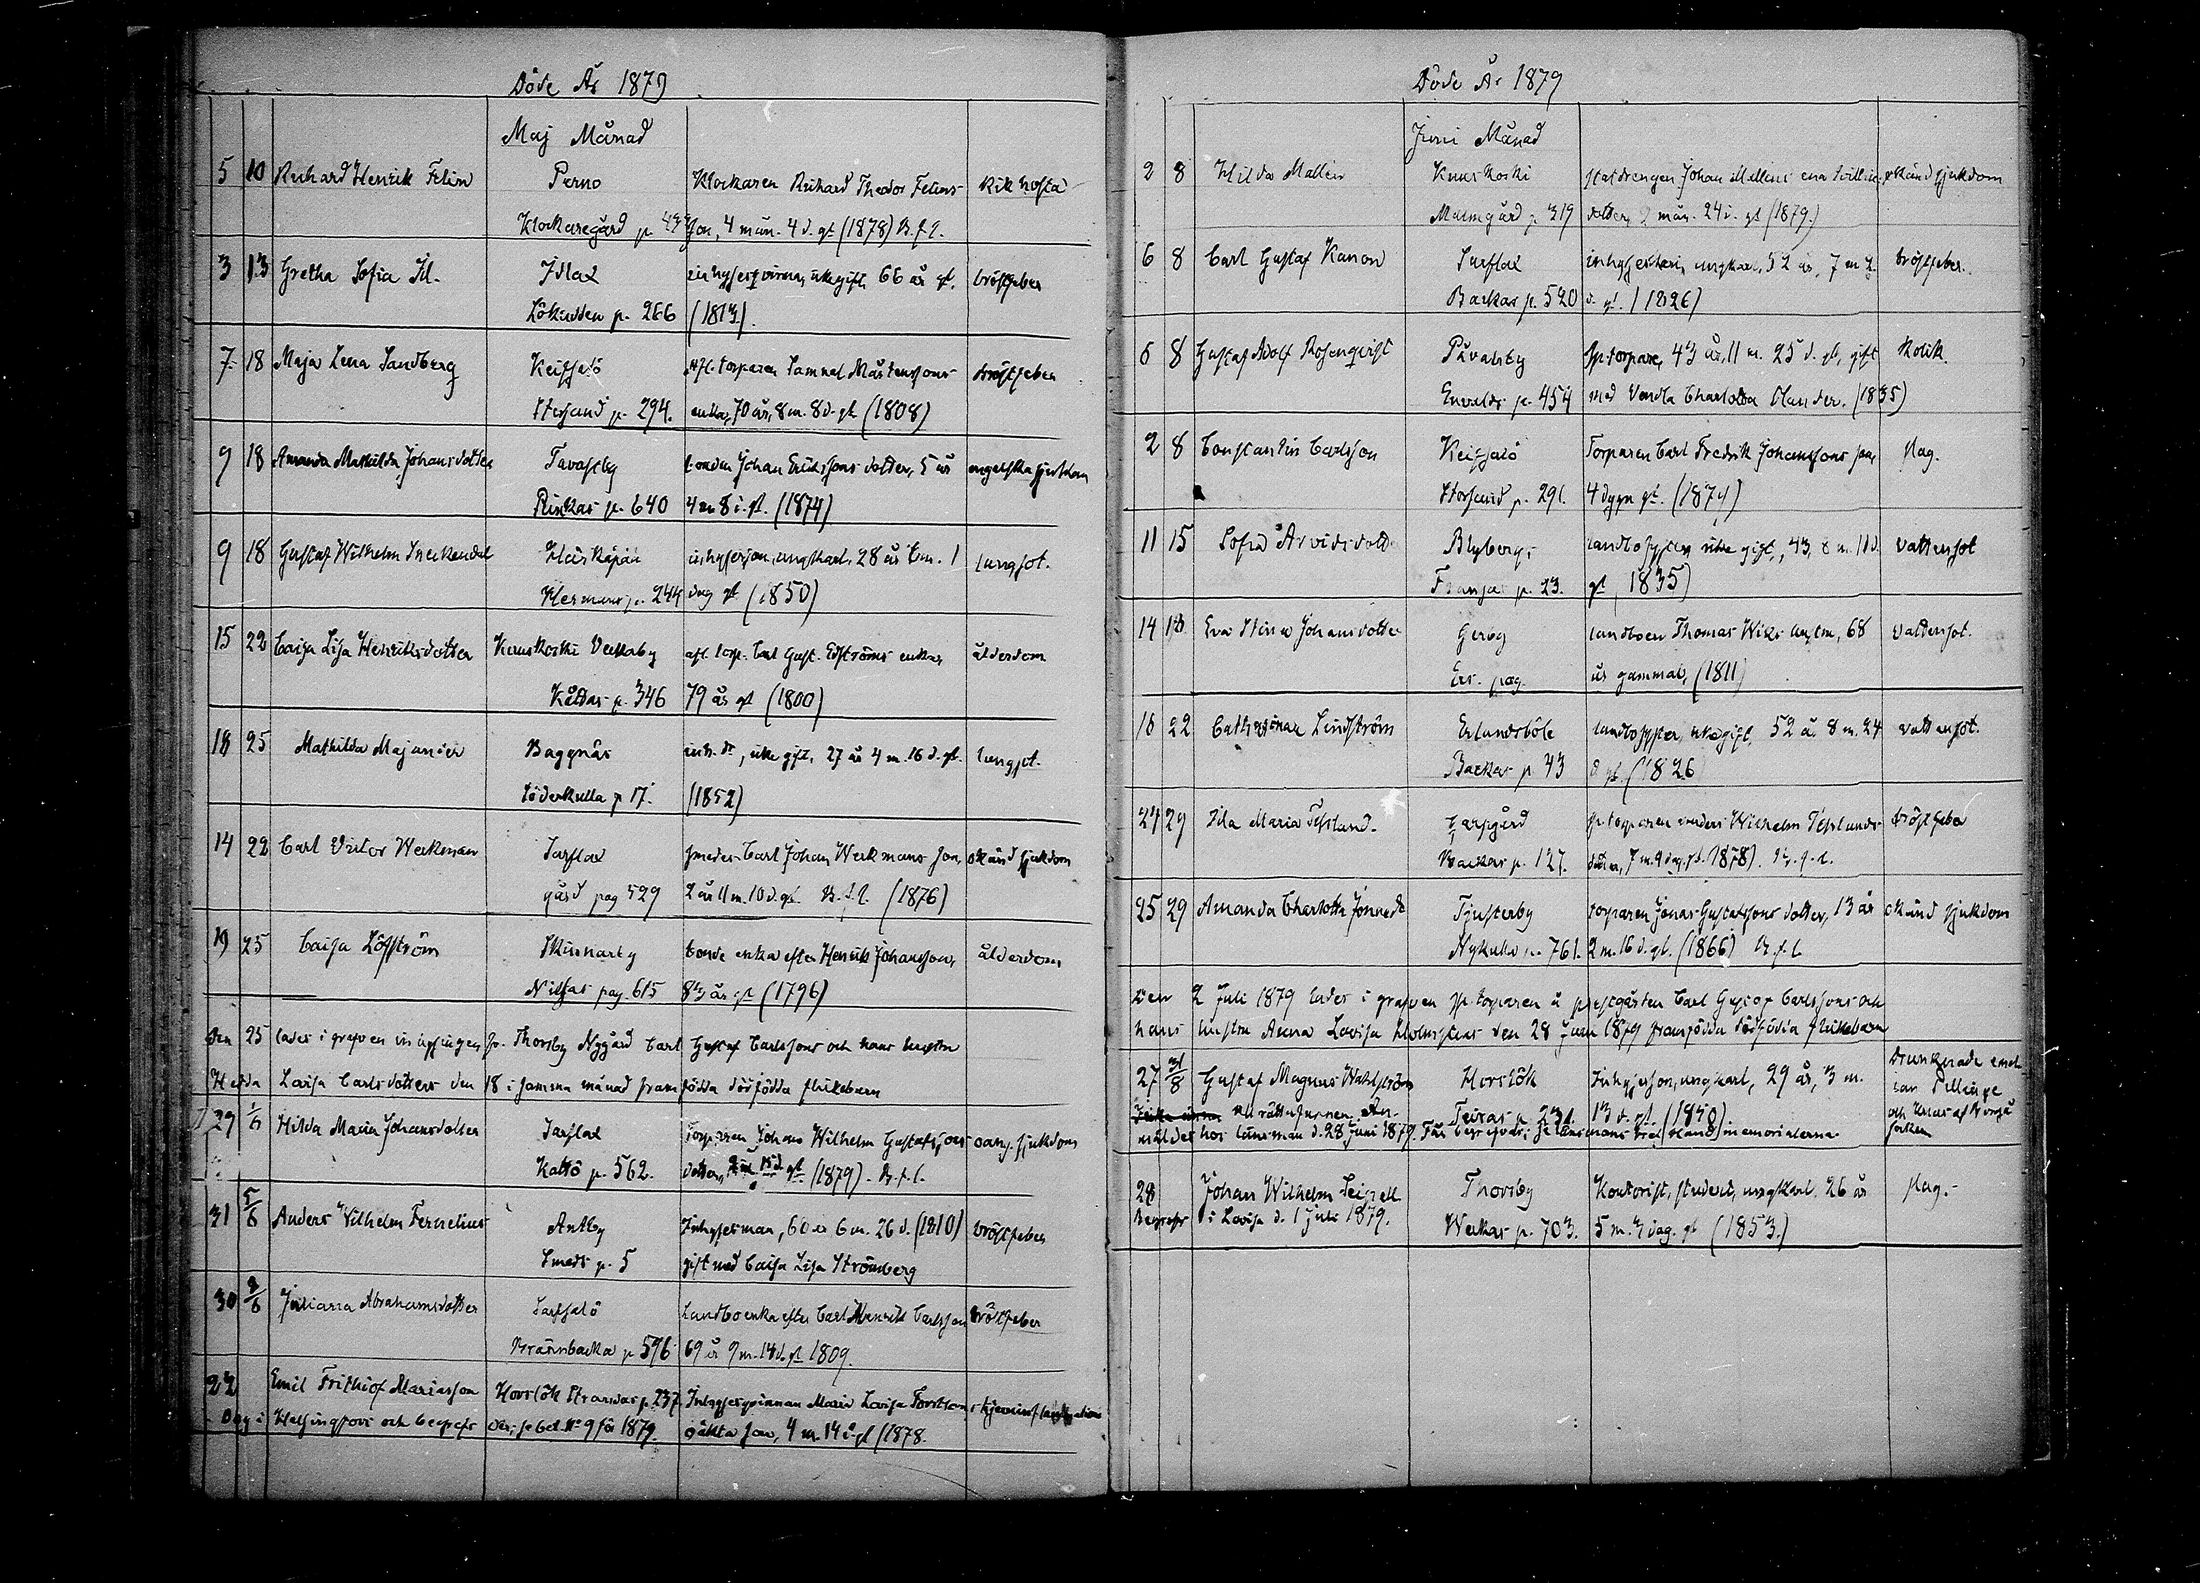 Döde År 1879
Maj Månad
5 10 Richard Henrik Felin Perno Klockaren Richard Theodor Felins kikhosta
Klockaregård p. son, 4 mån. 4 d. gl. (1878)
3 13 Gretha Sofia Id- Idlax inhysesqvinna, icke gift, 66 år gl. bröstfeber
p. 266 (1813).
7 18 Maja Lena Sandberg Keipsalö afl. torparen Samuel Mårtenssons bröstfeber
Storsand p. 294. enka, 70 år, 8 m. 8 d. gl. (1808)
9 18 Amanda Mathilda Johansdotter Tavastby bonden Johan Erikssons dotter, 5 år engelska sjukdom
p. 640 4 m 8 d. gl. (1874)
9 18 Gustaf Wilhelm inhyseson, ungkarl, 28 år m. 1 lungsot.
Hermans p. 244 dag gl (1850)
15 22 Caisa Lisa Henriksdotter Kuuskoski afl. torp. Carl Gust. Edströms enka, ålderdom
p. 346 79 år gl (1800)
18 25 Mathilda Majander Baggnäs inh. dr, icke gift, 27 år 4 m. 16 d. gl. lungsot.
Söderkulla p 17. (1852)
14 22 Carl Victor Werkman Sarflax smeden Carl Johan Werkmans son, okänd sjukdom
gård pag 529 2 år 11 m. 10 d. gl. (1876)
19 25 Caisa Löfström Skinnarby bonde enka efter Henrik Johansson, ålderdom
Nilsas pag. 615 83 år gl (1796)
Den 25 lades i grafven inhysingen fr. Thorsby Nygård Carl Gustaf Carlssons och hans hustru
Hedda Lovisa Carlsdotters den 18 i samma månad framfödda dödfödda flickebarn
29 1/6 Hilda Maria Johansdotter Sarflax Torparen Johans Wilhelm Gustafssons oang. sjukdom
Kattö p. 562. dotter, gl (1879)
31 5/6 Anders Wilhelm Fernelius Antby Inhysesman, 60 år 6 m. 26 d. (1810) bröstfeber
Smeds p. 5 gift med Caisa Lisa Strömberg
30 8/6 Juliana Abrahamsdotter Sarfsalö Landboenka efter Carl Henrik Carlsson bröstfeber
Brännbacka p 596 69 år 9 m. 14 d. gl 1809.
22 Emil Frithiof Mariasson Horslök Strandas p. 237. Inhysesqvinnan Maria Lovisa
i Helsingfors och begrafs der, se bet. N 9 för 1879. oäkta son, 4 m. 14 d. gl (1878.
Döde År 1879
Juni Månad
2 8 Hilda Mallen Kuuskoski statdrengen Johan Mallens ena okänd sjukdom
Malmgård p 319 dotter, 2 mån. 24 d. gl (1879.)
6 8 Carl Gustaf Kanon Sarflax ungkarl, 52 år, 7 m 2 bröstfeber.
Backas p. 520 d. gl. (1826)
6 8 Gustaf Adolf Rosenqvist Påvalsby sp. torpare, 43 år, 11 m. 25 d. gl, gift Kolik.
Envalds p. 454 med Vendla Charlotta Olander. (1835)
2 8 Constantin Carlsson Keipsalö Torparen Carl Fredrik Johanssons son, slag.
Storsand p. 291. 4 dygn gl. (1879)
11 15 Sofia Arvidsdott landbosyster, icke gift, 43, 8 m. 11 d. vattensot
p. 23. gl, 1835)
14 Eva Stina Johansdotter Gerby landboen Thomas Wiks hustru, 68 vattensot.
Er. pag. år gammal, (1811)
18 22 Catharina Lindström Erlandsböle landbosyster, icke gift, 52 å. 8 m. 24 vattensot.
Backas p 43 d gl. (1826
24 29 Ida Maria Tesslund. sp. torparen Anders Wilhelm Tesslunds bröstfeber
Backas p. 127. dotter, 7 m. 9 dag. gl. 1878).
25 29 Amanda Charlotta Jonasdr Tjusterby torparen Jonas Gustafssons dotter, 13 år okänd sjukdom
Nykulla p. 761. 2 m. 16 d. gl. (1866)
Den 2 Juli 1879 lades i grafven sp. torparen å prestgården Carl Gustaf Carlssons och
hans hustru Anna Lovisa den 28 Juni 1879 framfödda dödfödda flickebarn
27 31/8 Gustaf Magnus Wahlström Horslök Inhyseson, ungkarl, 29 år, 3 m. Drunknade emel
lan Pellinge
Teiras p. 231. 13 d. gl. (1850) och
mäldes hos länsman d. 28 Juni 1879. Får begrafvas; se länsmans bref bland memorialerna. socken
28 Johan Wilhelm Thorsby Kontorist, student, ungkarl, 26 år slag.
Begrofs i Lovisa d. 1 juli 1879. Weckas p. 703. 5 m. 4 dag. gl (1853.)